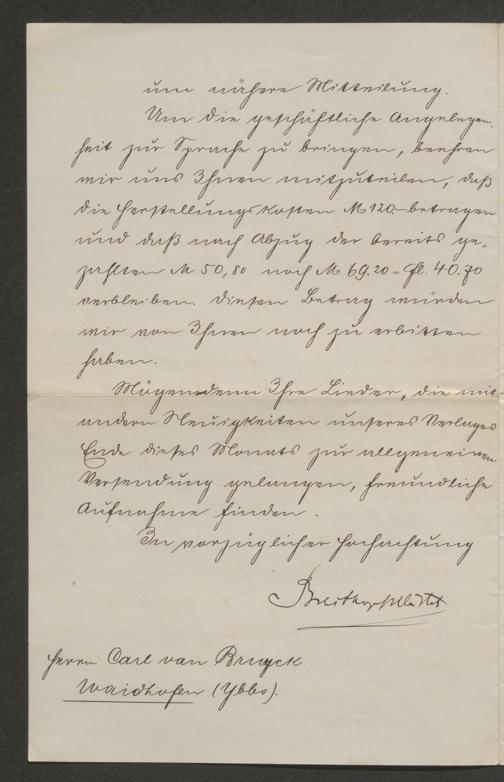 um nähere Mitteilung.
Um die geschäftliche Angelegen-
heit zur Sprache zu bringen, beehren
wir uns Ihnen mitzuteilen, daß
die Herstellungskosten M 120.- betragen
und daß nach Abzug der bereits ge-
zahlten M 50,80 noch M 69.20 = fl. 40.70
verbleiben. Diesen Betrag würden
wir von Ihnen noch zu erbitten
haben.
Mögen denn Ihre Lieder, die mit
andern Neuigkeiten unseres Verlages
Ende dieses Monats zur allgemeinen
Versendung gelangen, freundliche
Aufnahme finden.
In vorzüglicher Hochachtung
Breitkopf & Härtel
Herrn Carl van Bruyck
Waidhofen (Ybbs).